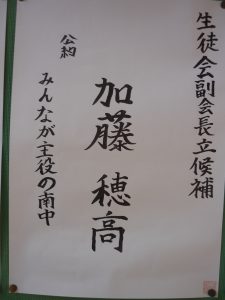 生徒会副会長立候補
加藤 穂高
公約
みんなが主役の南中